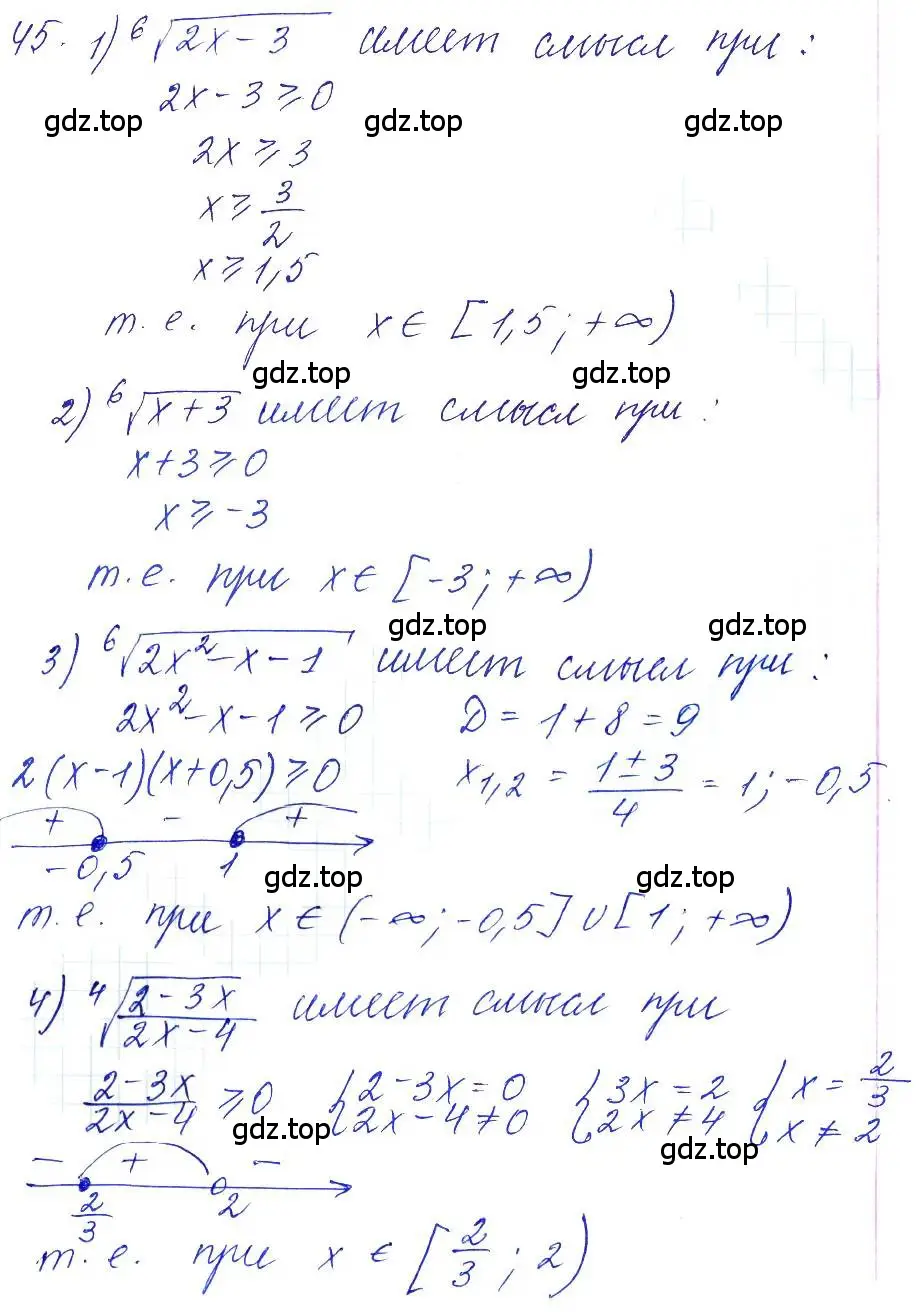 45. 1) ⁶√(2x-3) имеет смысл при:
2x-3⩾0
gdz.top gdz.top gdz.top
2x⩾3
x⩾3/2
x⩾1,5
т.е. при x∈[1,5;+∞)
gdz.top gdz.top
2) ⁶√(x+3) имеет смысл при:
x+3⩾0
x⩾-3
т.е. при x∈[-3;+∞)
gdz.top gdz.top
3) ⁶√(2x²-x-1) имеет смысл при:
2x²-x-1⩾0 D=1+8=9
2(x-1)(x+0,5)⩾0 x₁,₂=(1±3)/4=1;-0,5
+ - +
-0,5 1
gdz.top gdz.top
т.е. при x∈(-∞;-0,5]∪[1;+∞)
4) ⁴√((2-3x)/(2x-4)) имеет смысл при
(2-3x)/(2x-4)⩾0 {2-3x=0 {3x=2 {x=2/3
2x-4≠0 2x≠4 x≠2
gdz.top gdz.top
- + -
2/3 2
т.е. при x∈[2/3;2)